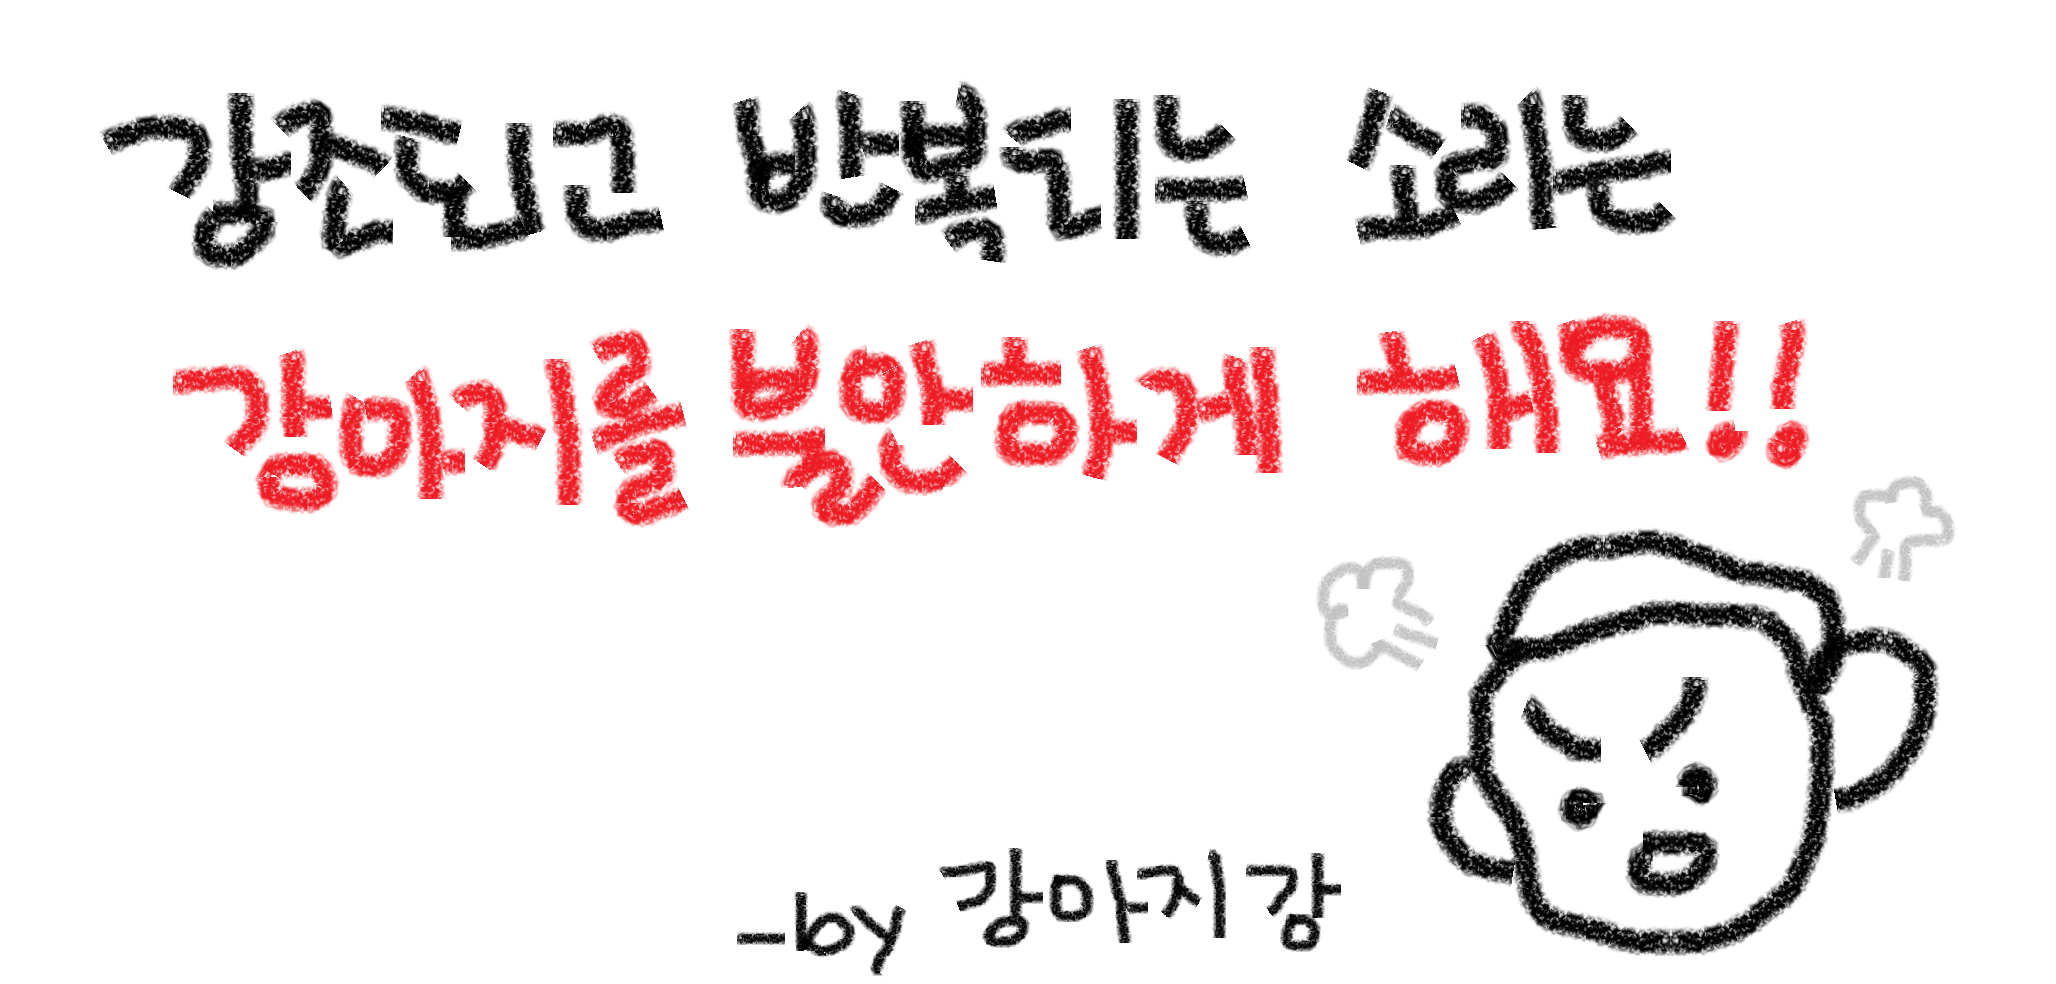 강조되고 반복되는 소리는
강아지를 불안하게 해요!!
-by 강아지강